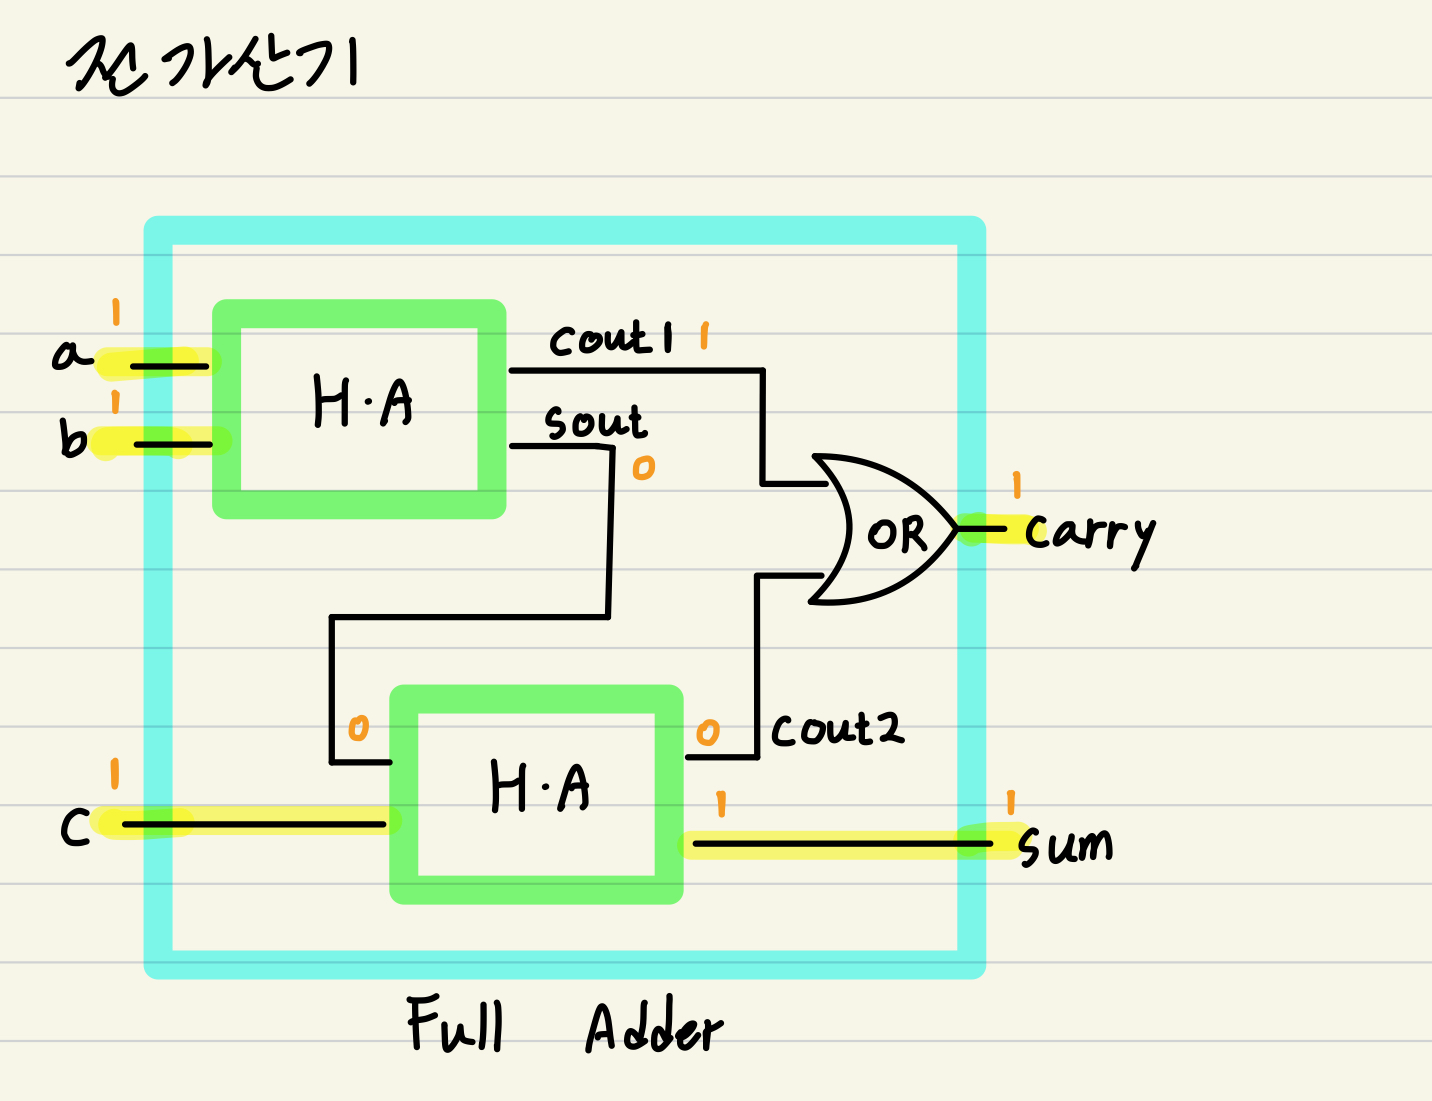 전가산기
1
a
1
b
H·A
cout1 1
sout
0
OR
1
carry
0
1
c
H·A
0
cout2
1
1
sum
Full Adder